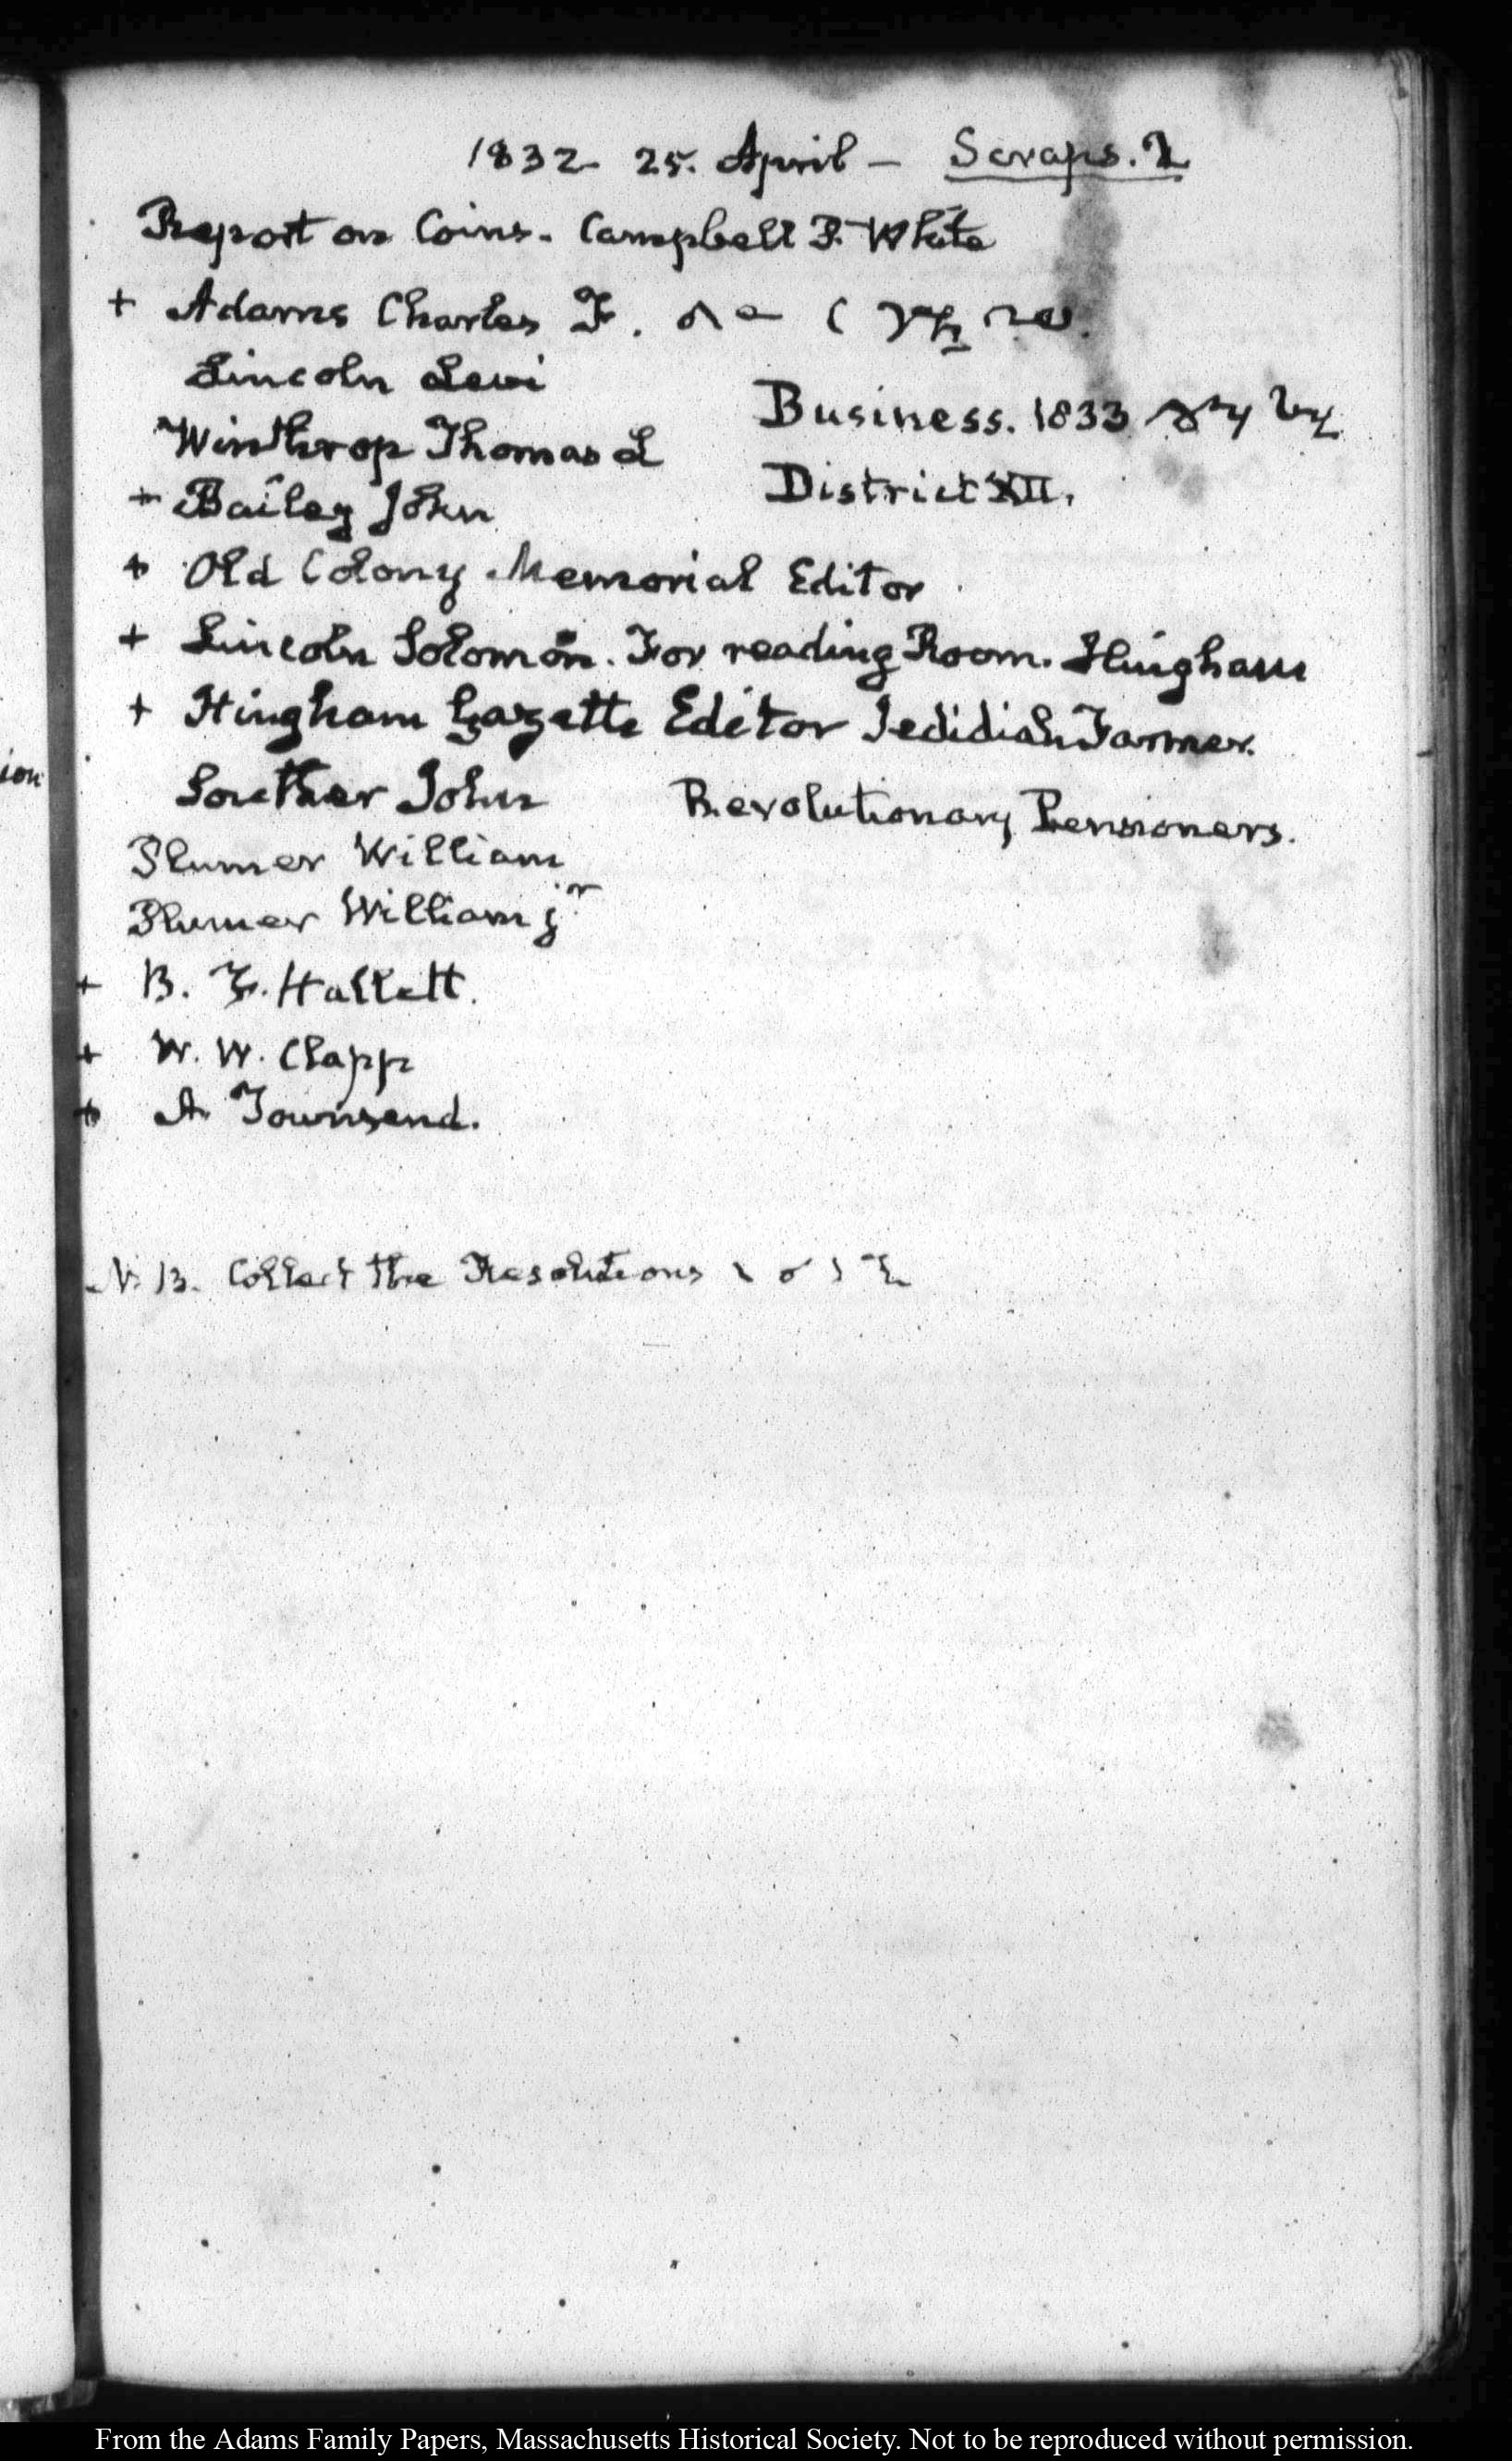 1832 25. April – Scraps. 2
Report on Coins. Campbell P. White
+ Adams Charles F.
Lincoln Levi
Business. 1833
Winthrop Thomas L
District XII.
+ Bailey John
+ Old Colony Memorial Editor
+ Lincoln Solomon. For reading Room. Hingham
+ Hingham Gazette Editor Jedidiah Farmer.
ion
Souther John Revolutionary Pensioners.
Plumer William
Plumer William jr
+ B. F. Hallett.
+ W. W. Clapp
+ A Townsend.
N. B. Collect the Resolutions
From the Adams Family Papers, Massachusetts Historical Society. Not to be reproduced without permission.